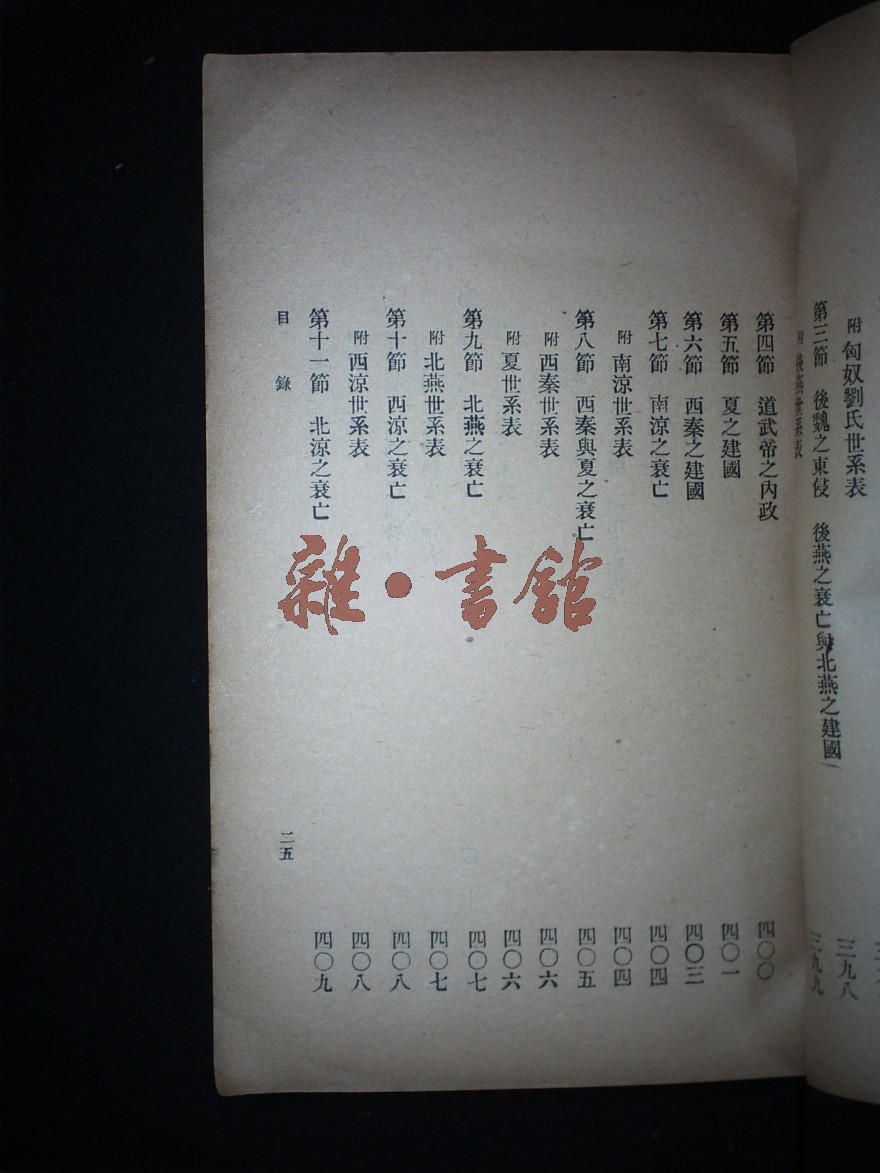 附 匈奴劉氏世系表 三九八
第三節 後魏之東侵 後燕之衰亡與北燕之建國 三九九
附 後燕世系表
第四節 道武帝之內政 四〇〇
第五節 夏之建國 四〇一
第六節 西秦之建國 四〇三
第七節 南涼之衰亡 四〇四
附 南涼世系表 四〇四
第八節 西秦與夏之衰亡 四〇五
附 西秦世系表 四〇六
附 夏世系表 四〇六
第九節 北燕之衰亡 四〇七
附 北燕世系表 四〇七
第十節 西涼之衰亡 四〇八
附 西涼世系表 四〇八
第十一節 北涼之衰亡 四〇九
目錄 二五
雜·書館